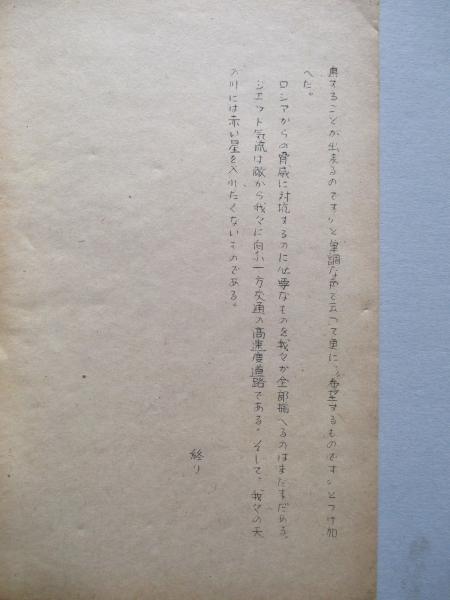 用することが出来るのです」と単調な声で云つて更に、「希望するものです」とつけ加
へた。
ロシアからの脅威に対抗するのに必要なものを我々が全部揃へるのはまだまだある。
ジエツト気流は敵から我々に向ふ一方交通の高速度道路である。そして、我々の天
井には赤い星を入れたくないものである。
終り